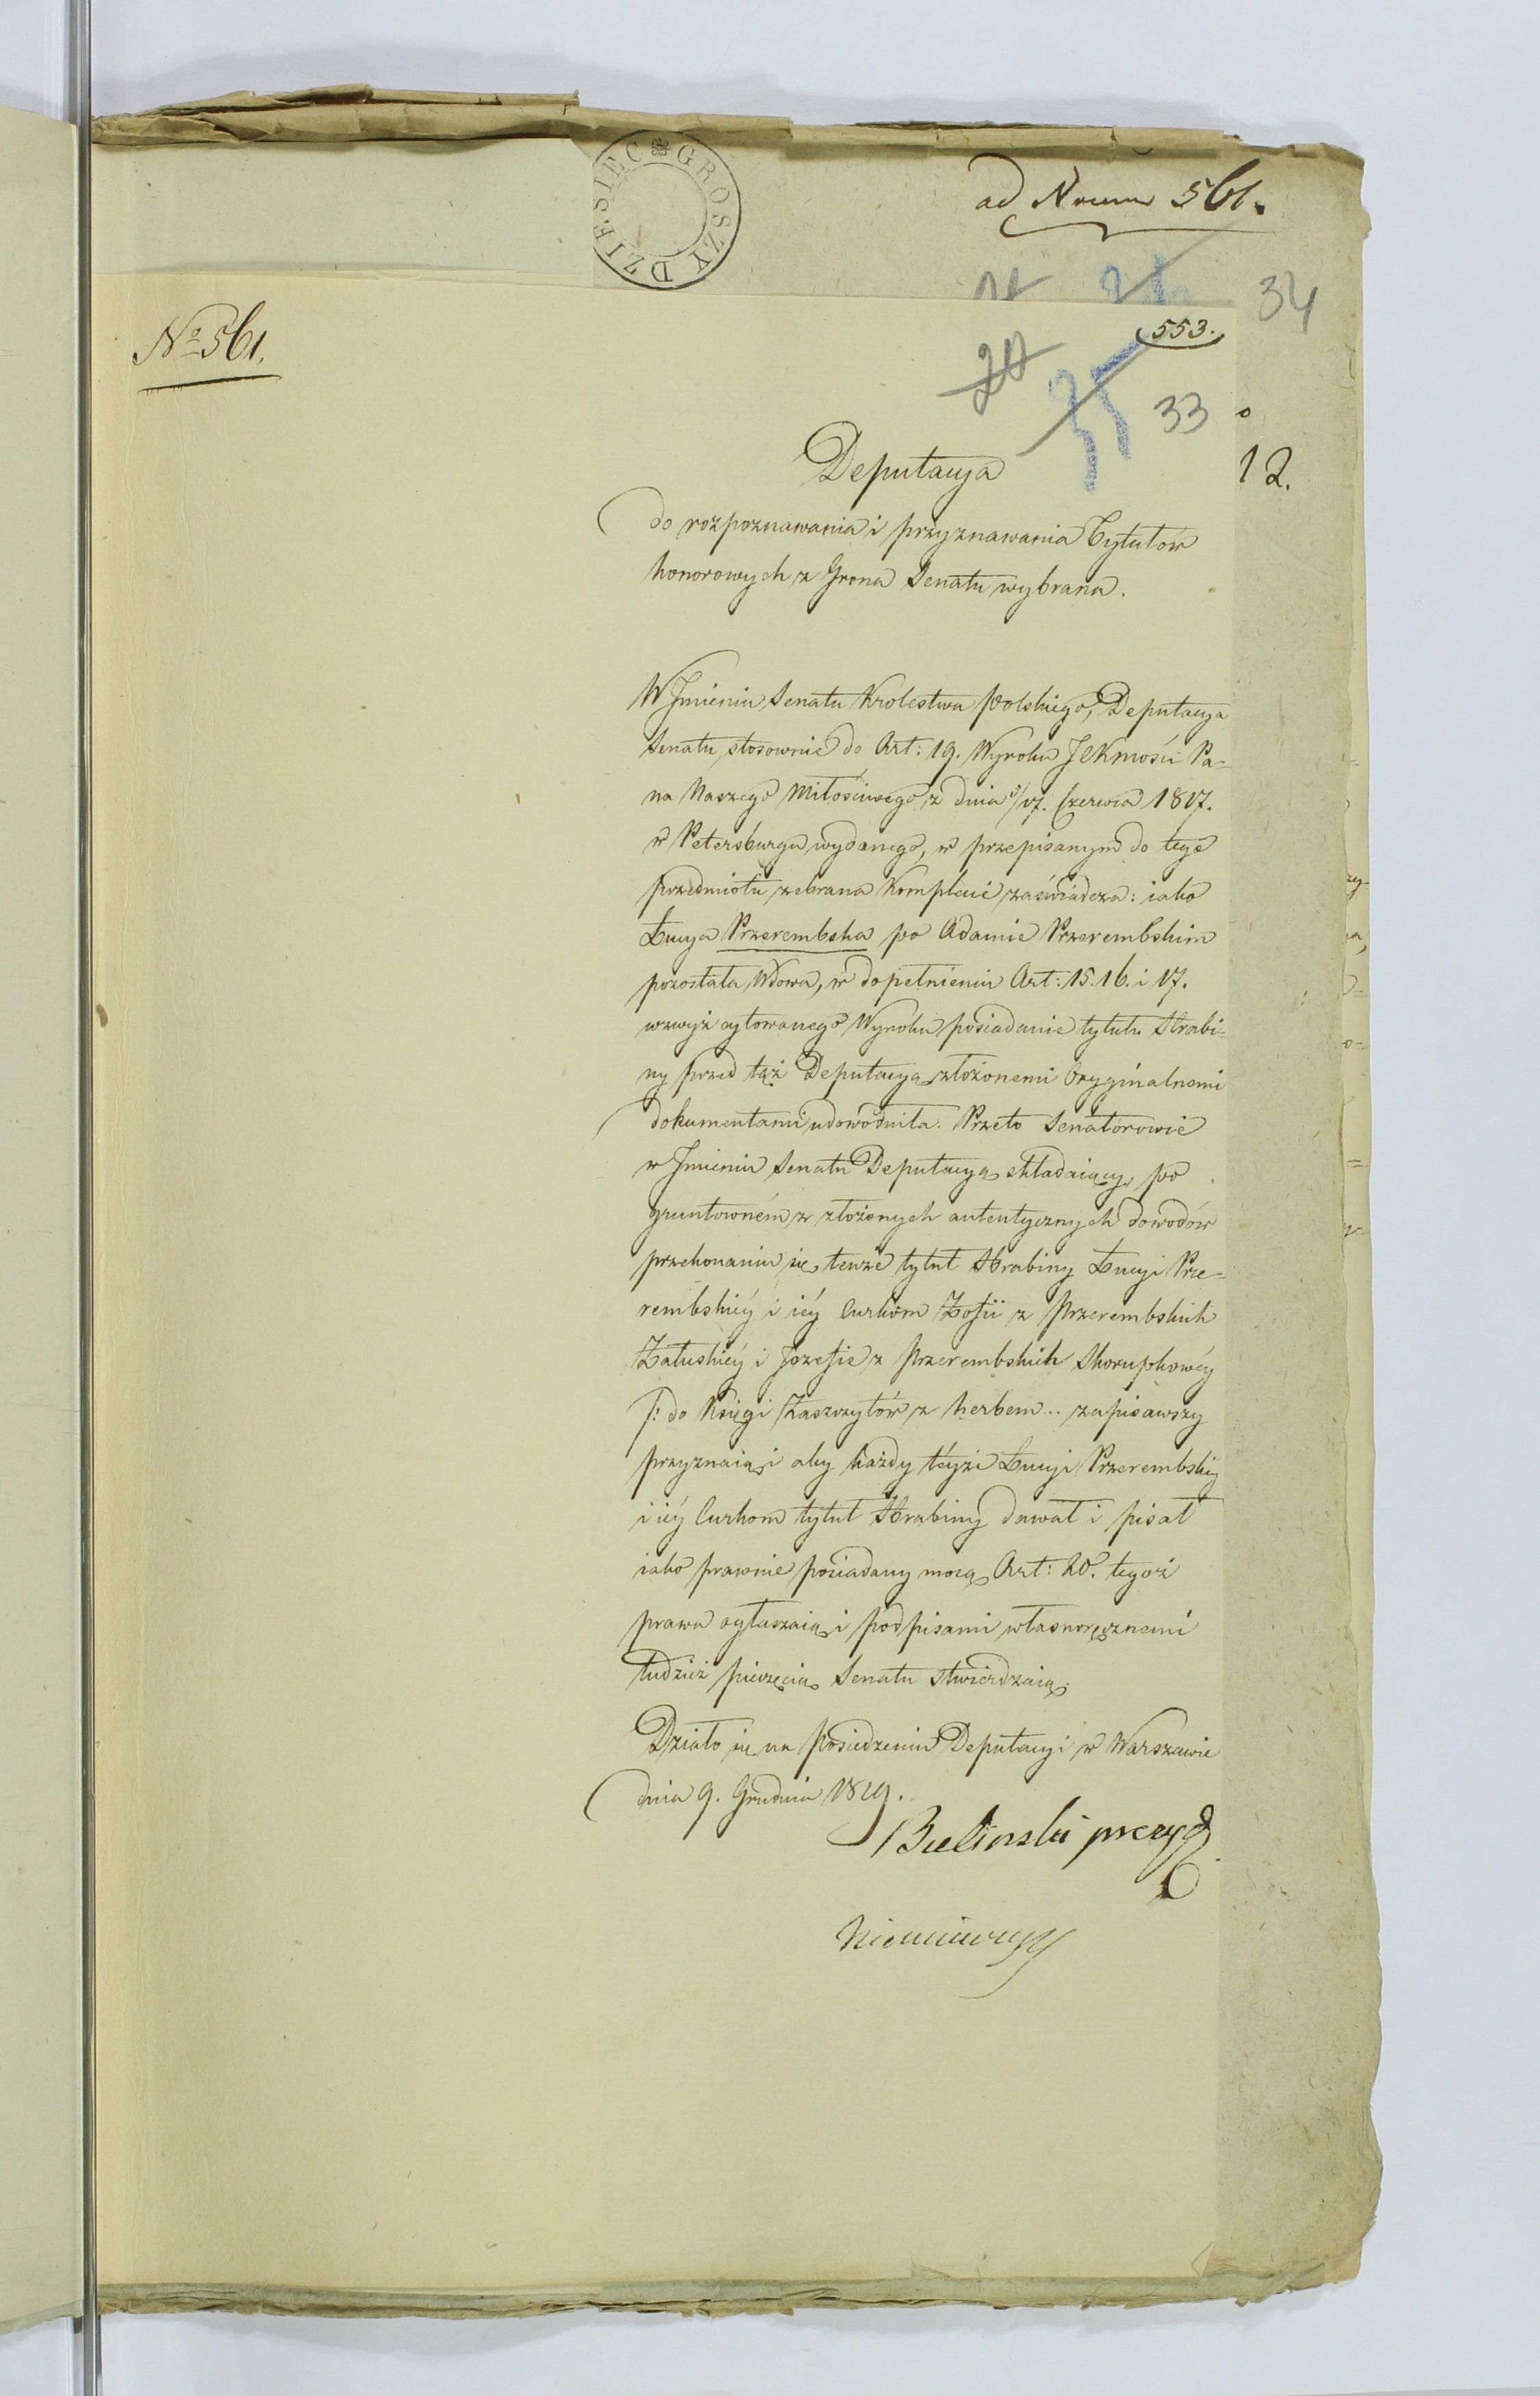 DZIESIEC GROSZY
ad Num 561.
34
No 561.
553.
20
33
12.
Deputacya
do rozpoznawania i przyznawania Tytułów
honorowych z Grona Senatu wybrana.
W Jmieniu Senatu Krolestwa Polskiego, Deputacya
Senatu, stosownie do Art: 19. Wyroku JKMości Pa-
na Naszego Miłościwego z dnia 5/17. Czerwca 1817.
w Petersburgu wydanego, w przepisanym do tego
przedmiotu zebrana Komplecie zaświadcza: iako
Łucya Przerembska po Adamie Przerembskim
pozostała Wdowa, w dopełnieniu Art: 15. 16. i 17.
wzwyż cytowanego Wyroku posiadanie tytułu Hrabi-
ny przed tąż Deputacyą złożonemi Oryginalnemi
dokumentami udowodniła. Przeto Senatorowie
w Jmieniu Senatu Deputacyą składaiący, po
gruntowném z złożonych autentycznych dowodów
przekonaniu się, tenże tytuł Hrabiny Łucyi Prze-
rembskiéy i iéy Curkom Zofii z Przerembskich
Załuskiéy i Jozefie z Przerembskich Skorupkowéy
/: do Księgi Zaszczytów z herbem ... zapisawszy
przyznaią i aby każdy téyże Łucyi Przerembskiéy
i iéy Curkom tytuł Hrabiny dawał i pisał
iako prawnie posiadany mocą Art: 20. tegoż
prawa ogłaszaią i podpisami własnoręcznemi
tudzież pieczęcią Senatu stwierdzaią.
Działo się na Posiedzeniu Deputacyi w Warszawie
dnia 9. Grudnia 1819.
Bielinski prezyd
Niemcewicz